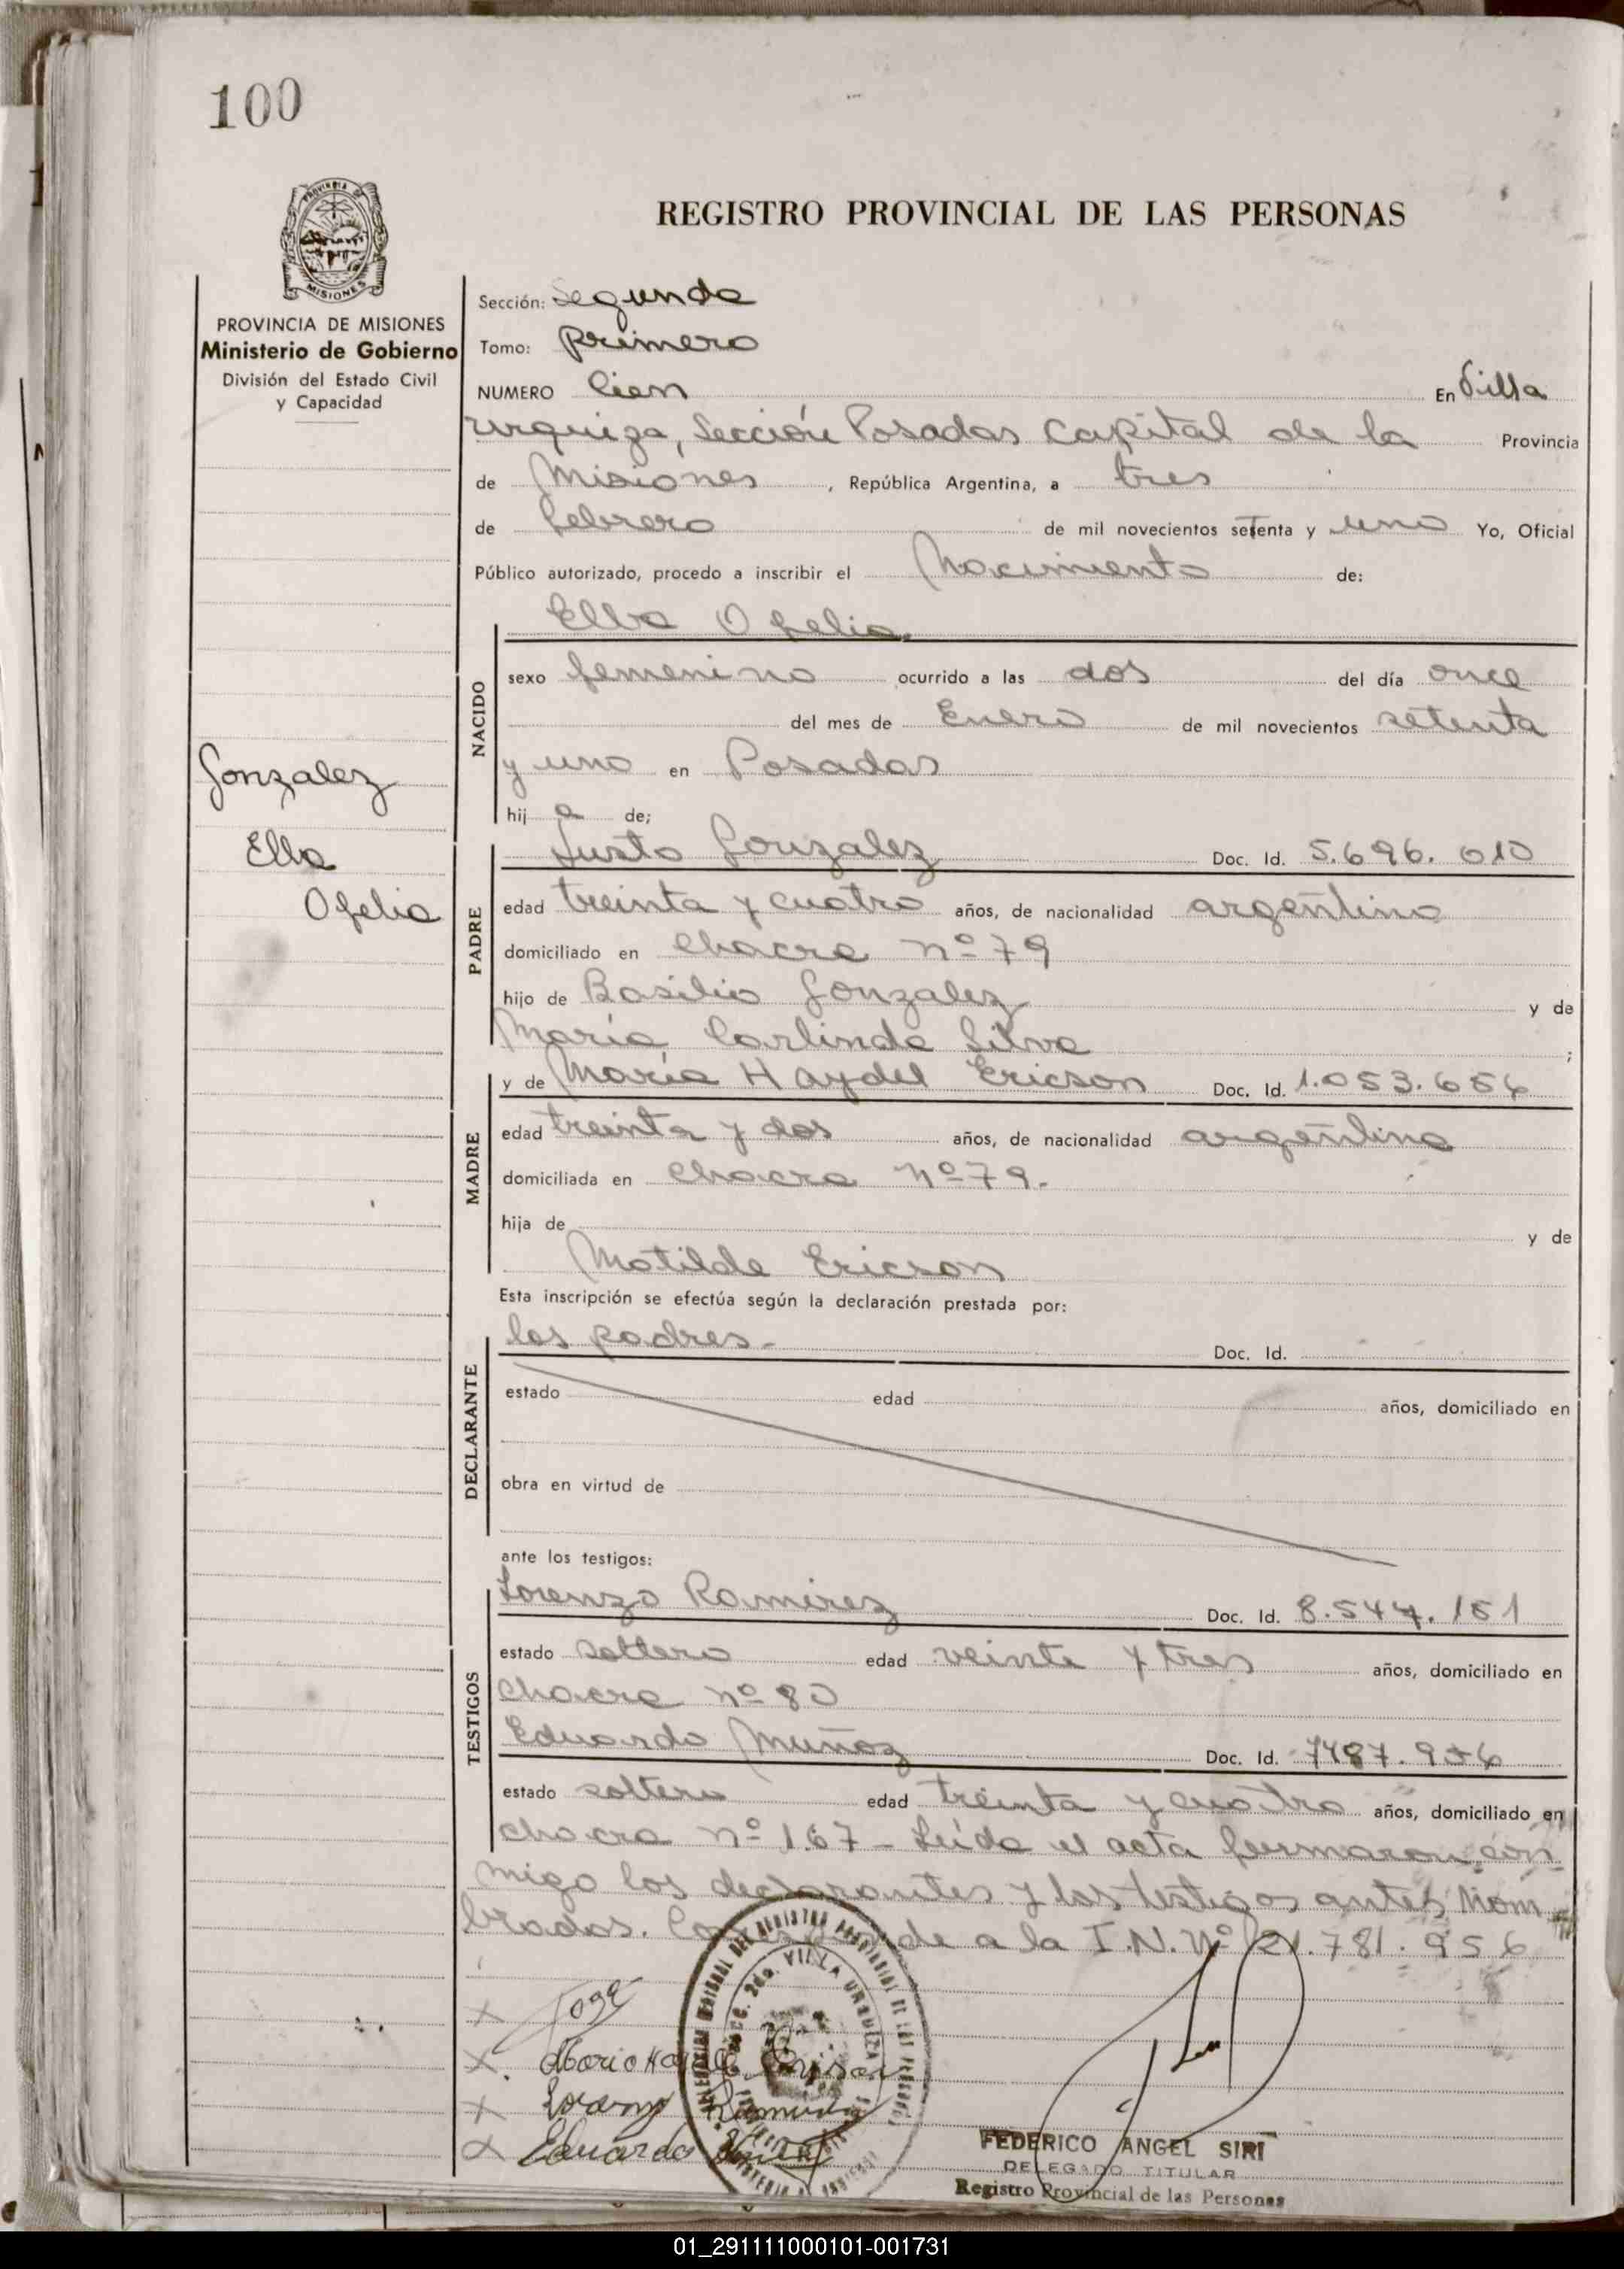 100
PROVINCIA DE MISIONES
Ministerio de Gobierno
División del Estado Civil
y Capacidad
Gonzalez
Elba
Ofelia
REGISTRO PROVINCIAL DE LAS PERSONAS
Sección: Segunda
Tomo: Primero
NUMERO Cien En Villa
Urquiza, Sección Posadas Capital de la Provincia
de Misiones, República Argentina, a tres
de febrero de mil novecientos setenta y uno Yo, Oficial
Público autorizado, procedo a inscribir el Nacimiento de:
Elba Ofelia
NACIDO
sexo femenino ocurrido a las dos del día once
del mes de Enero de mil novecientos setenta
y uno en Posadas
hij a de;
PADRE
Justo Gonzalez Doc. Id. 5.696.010
edad treinta y cuatro años, de nacionalidad argentino
domiciliado en Chacra nº 79
hijo de Basilio Gonzalez y de
María Carlinda Silva ;
MADRE
y de María Haydeé Ericson Doc. Id. 1.053.656
edad treinta y dos años, de nacionalidad argentina
domiciliada en Chacra nº 79.
hija de y de
Matilde Ericson
Esta inscripción se efectúa según la declaración prestada por:
DECLARANTE
los padres.- Doc. Id.
estado edad años, domiciliado en
obra en virtud de
ante los testigos:
TESTIGOS
Lorenzo Ramirez Doc. Id. 8.544.151
estado soltero edad veinte y tres años, domiciliado en
Chacra nº 80
Eduardo Muñoz Doc. Id. 7487.956
estado soltero edad treinta y cuatro años, domiciliado en
chacra nº 167 - Leída el acta firmaron con
migo los declarantes y los testigos antes nom
brados. Corresponde a la I.N. Nº 21.781.956
SECC. 2da. VILLA URQUIZA
Maria Haydeé Ericson
Lorenzo Ramirez
Eduardo Muñoz
FEDERICO ANGEL SIRI
DELEGADO TITULAR
Registro Provincial de las Personas
01_291111000101-001731